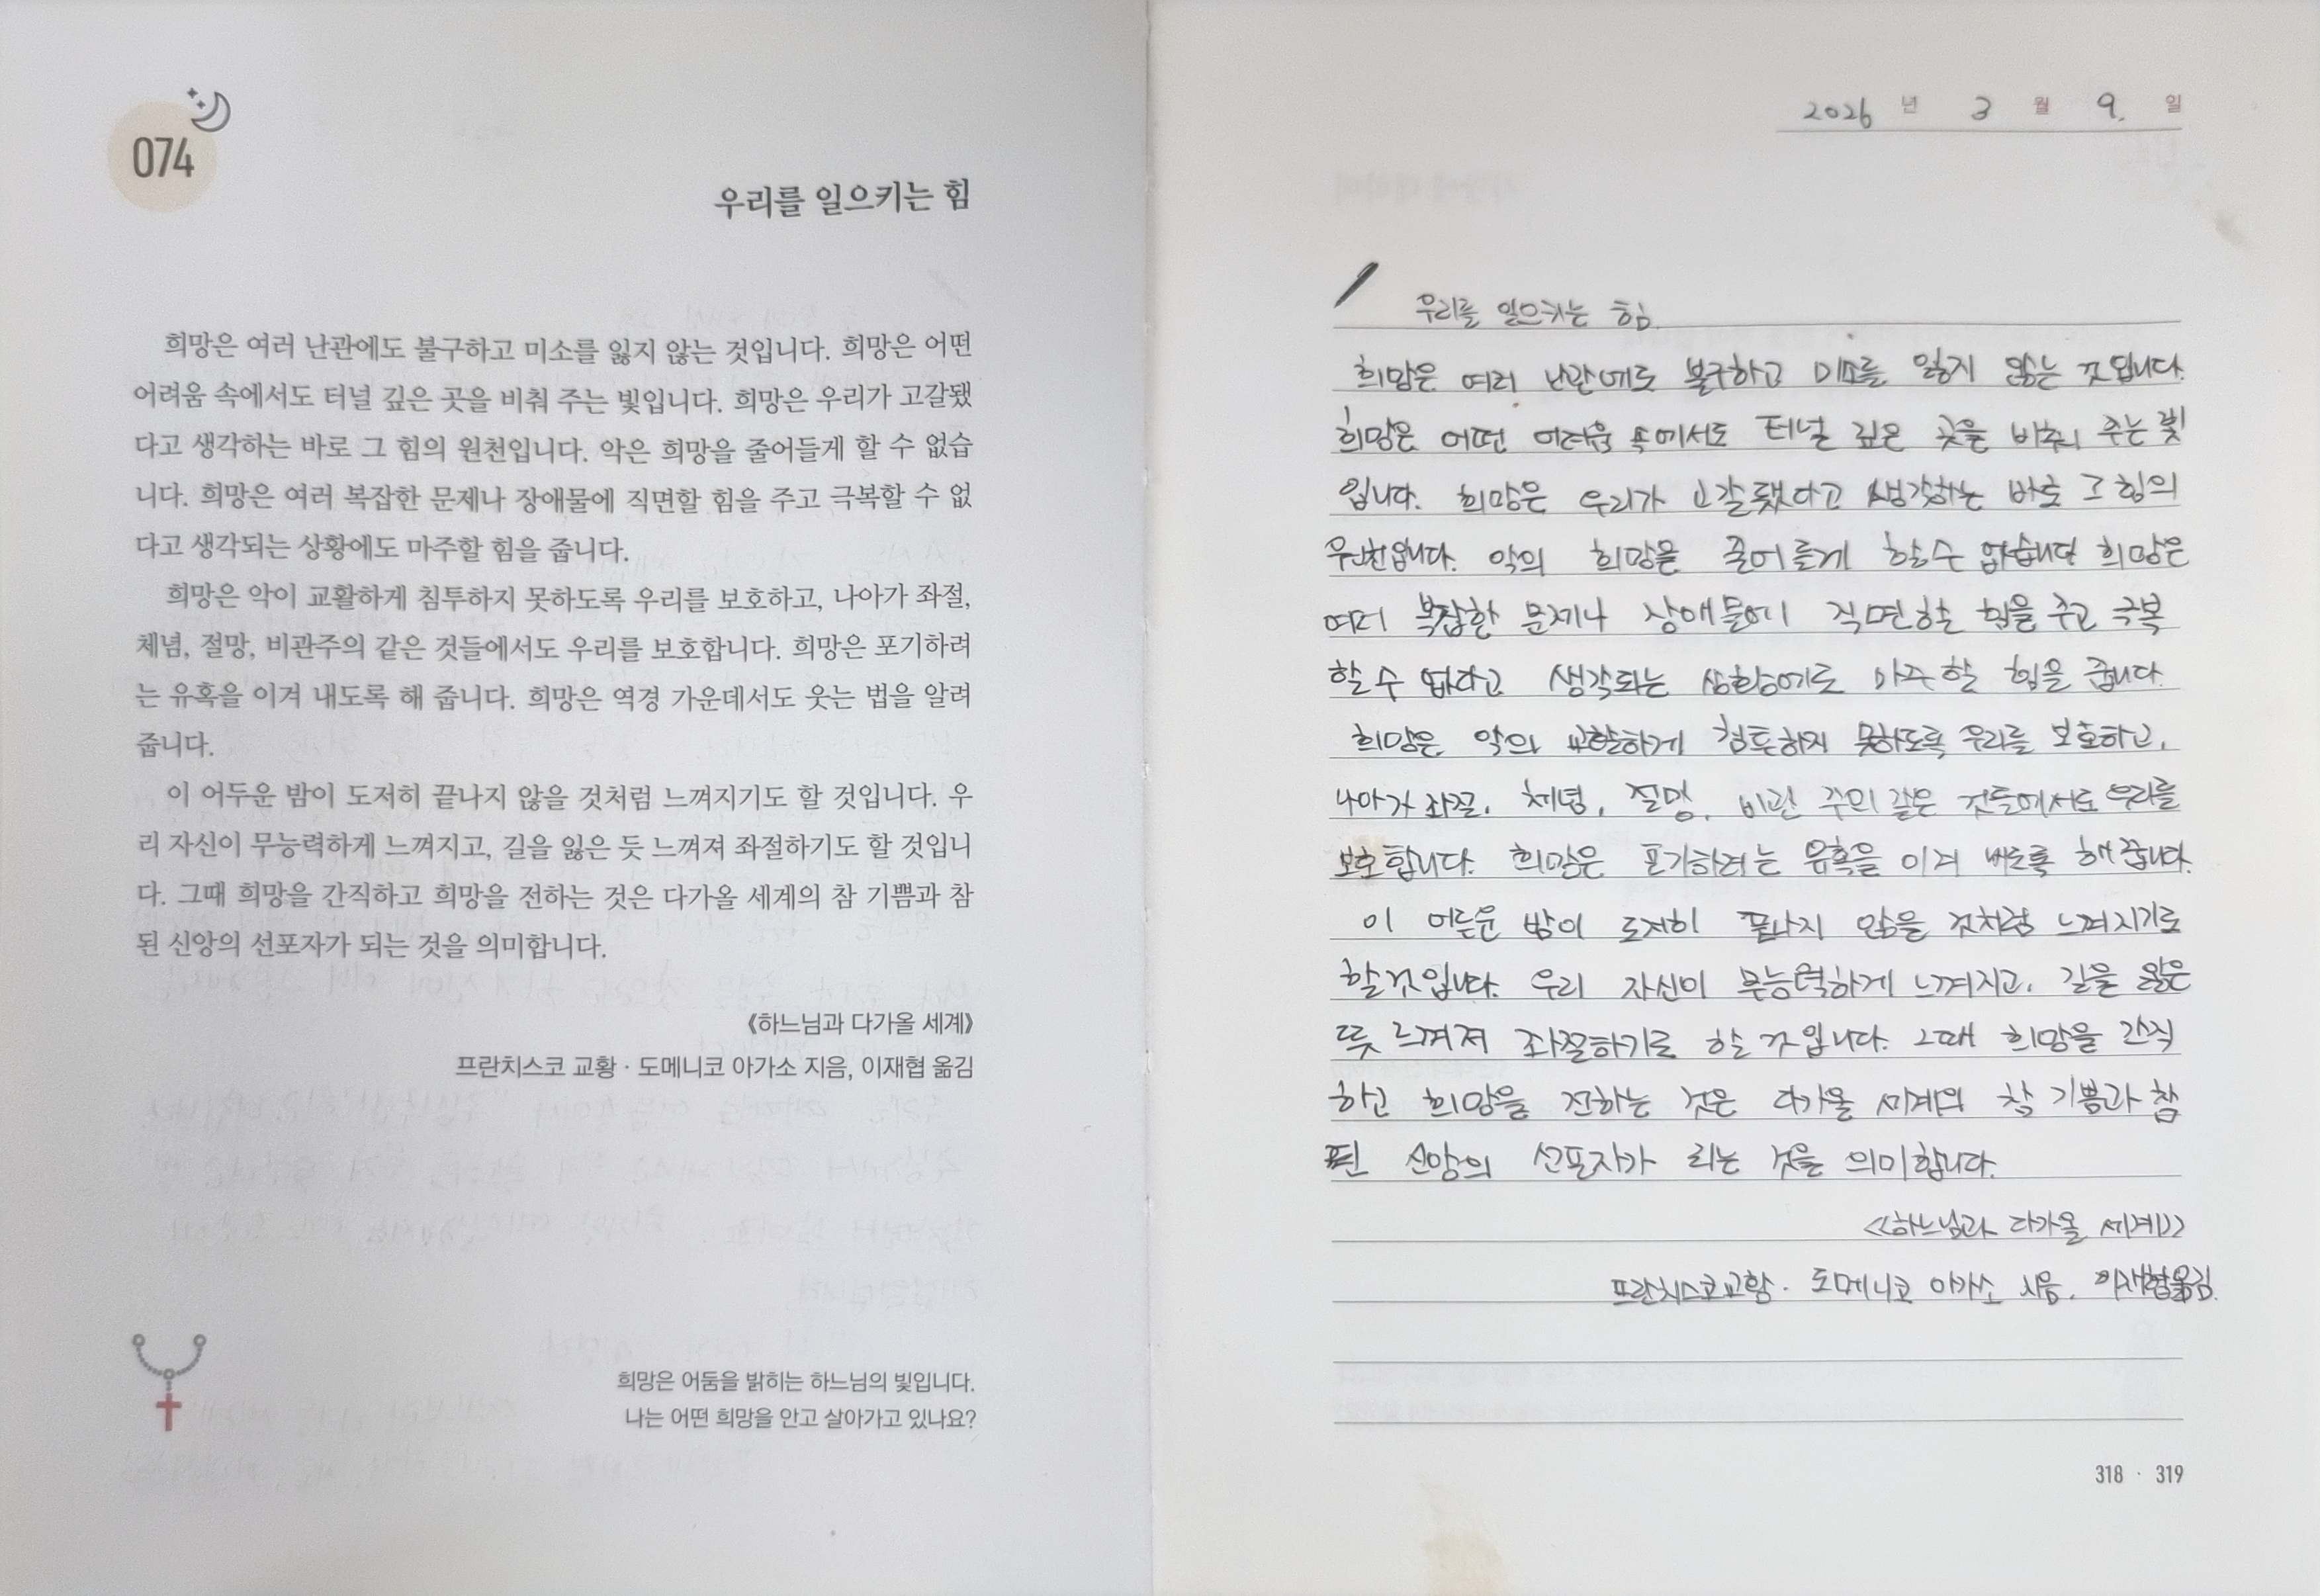 074
우리를 일으키는 힘
희망은 여러 난관에도 불구하고 미소를 잃지 않는 것입니다. 희망은 어떤
어려움 속에서도 터널 깊은 곳을 비춰 주는 빛입니다. 희망은 우리가 고갈됐
다고 생각하는 바로 그 힘의 원천입니다. 악은 희망을 줄어들게 할 수 없습
니다. 희망은 여러 복잡한 문제나 장애물에 직면할 힘을 주고 극복할 수 없
다고 생각되는 상황에도 마주할 힘을 줍니다.
희망은 악이 교활하게 침투하지 못하도록 우리를 보호하고, 나아가 좌절,
체념, 절망, 비관주의 같은 것들에서도 우리를 보호합니다. 희망은 포기하려
는 유혹을 이겨 내도록 해 줍니다. 희망은 역경 가운데서도 웃는 법을 알려
줍니다.
이 어두운 밤이 도저히 끝나지 않을 것처럼 느껴지기도 할 것입니다. 우
리 자신이 무능력하게 느껴지고, 길을 잃은 듯 느껴져 좌절하기도 할 것입니
다. 그때 희망을 간직하고 희망을 전하는 것은 다가올 세계의 참 기쁨과 참
된 신앙의 선포자가 되는 것을 의미합니다.
《하느님과 다가올 세계》
프란치스코 교황 · 도메니코 아가소 지음, 이재협 옮김
희망은 어둠을 밝히는 하느님의 빛입니다.
나는 어떤 희망을 안고 살아가고 있나요?
2026 년 3 월 9. 일
우리를 일으키는 힘
희망은 여러 난관에도 불구하고 미소를 잃지 않는 것입니다.
희망은 어떤 어려움 속에서도 터널 깊은 곳을 비춰 주는 빛
입니다. 희망은 우리가 고갈됐다고 생각하는 바로 그 힘의
원천입니다. 악의 희망을 줄어들게 할 수 없습니다 희망은
여러 복잡한 문제나 장애물에 직면할 힘을 주고 극복
할 수 없다고 생각되는 상황에도 마주할 힘을 줍니다.
희망은 악의 교활하게 침투하지 못하도록 우리를 보호하고,
나아가 좌절, 체념, 절망, 비관 주의 같은 것들에서도 우리를
보호합니다. 희망은 포기하려는 유혹을 이겨 내도록 해 줍니다.
이 어두운 밤이 도저히 끝나지 않을 것처럼 느껴지기도
할 것입니다. 우리 자신이 무능력하게 느껴지고, 길을 잃은
듯 느껴져 좌절하기도 할 것입니다. 그때 희망을 간직
하고 희망을 전하는 것은 다가올 세계의 참 기쁨과 참
된 신앙의 선포자가 되는 것을 의미합니다.
<<하느님과 다가올 세계>>
프란치스코 교황 · 도메니코 아가소 지음, 이재협 옮김.
318 · 319